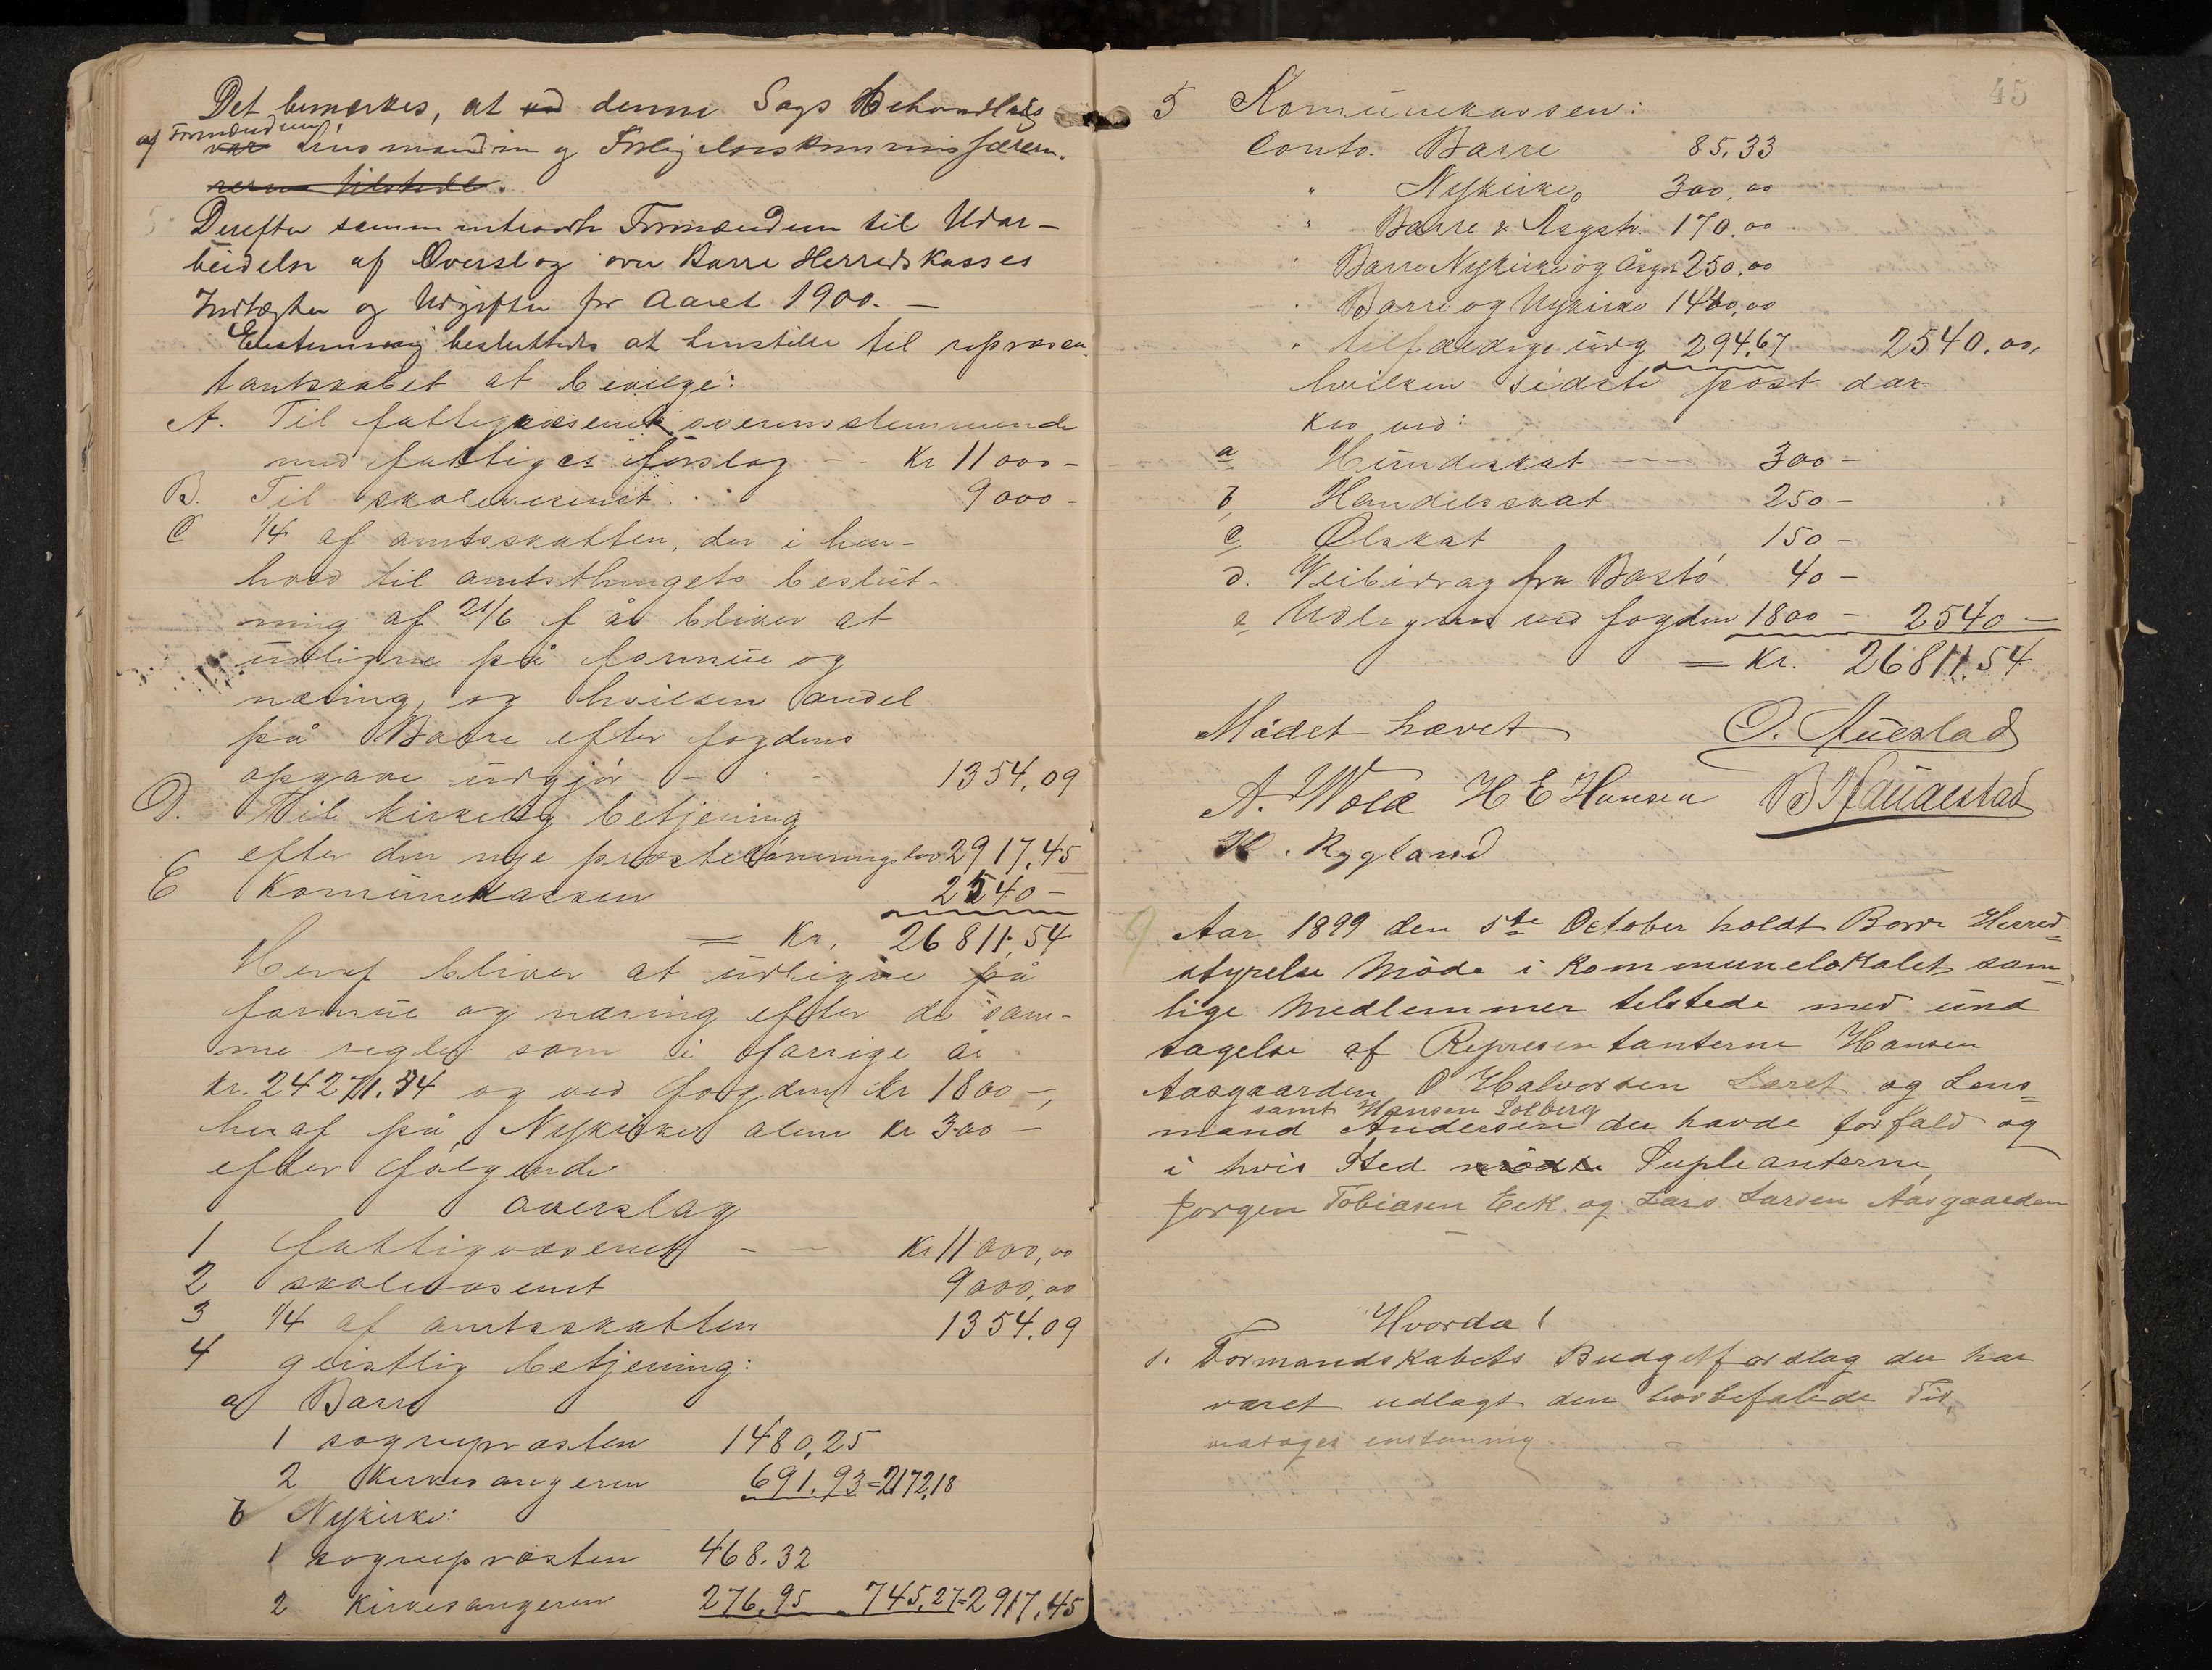 Det bemærkes, at ved denne Sags Behandling
af Formændene
var Lensmanden og Forligelseskommissærerne
rerne tilstede.
Derefter sammentraadte Formændene til Udar-
beidelse af Overslag over Borre Herredskasses
Indtægter og Udgifter for Aaret 1900. —
Enstemmig besluttedes at henstille til repræsen-
tantskabet at bevilge:
A. Til fattigvæsenet overensstemmende
med fattigcs forslag - - Kr 11000 -
B. Til skolevæsenet . . 9000 -
C 1/4 af amtsskatten, der i hen-
hold til amtsthingets beslut-
ning af 21/6 f år bliver at
udligne på formue og
næring, og hvilken andel
på Borre efter fogdens
opgave udgjør - - - 1354,09
D. Til kirkelig betjening
efter den nye præstelønningslov 2917,45
E Komunekassen 2540 -
= Kr, 26811,54
Heraf bliver at udligne på
formue og næring efter de sam-
me regler som i forrige år
kr. 24271.54 og ved fogden kr 1800 -,
heraf på Nykirke alene kr 300 -
efter følgende
overslag
1 fattigvæsenet - - Kr 11000,00
2 skolevæsenet 9000,00
3 1/4 af amtsskatten 1354.09
4 geistlig betjening:
a Borre
1 sognepræsten 1480,25
2 Kirkesangeren 691.93=2172,18
b Nykirke:
1 sognepræsten 468.32
2 Kirkesangeren 276,95 745,27=2917,45
45
5 Komunekassen:
Conto. Borre 85,33
" Nykirke 300,00
" Borre & Aagstr. 170,00
" Borre Nykirke og Åsgst 250,00
" Borre og Nykirke 1440,00
" tilfældige udg 294,67 2540.00,
hvilken sidste post dæk-
kes ved:
a Hundeskat — 300 -
b, Handelsskat 250 -
c, Ølskat 150 -
d. Veibidrag fra Bastö 40 -
e Udlignes ved fogden 1800 - 2540 -
= Kr. 26811.54
Mødet hævet O. Auestad
A. Wold H E Hansen B Haugestad
H. Rygland
Aar 1899 den 5te October holdt Borre Herred-
styrelse Möde i Kommunelokalet sam-
lige Medlemmer telstede med und
tagelse af Representanterne Hansen
Aasgaarden O Halvorsen Laret og Lens-
samt Hansen Solberg
mand Andersen der havde forfald og
i hvis Sted mödte Supleanterne
Jørgen Tobiasen Eek og Lars Larsen Aasgaarden
Hvorda!
1. Formandskabets Budgetforslag der har
været udlagt den lovbefalede Tid,
vedtoges enstemmig.